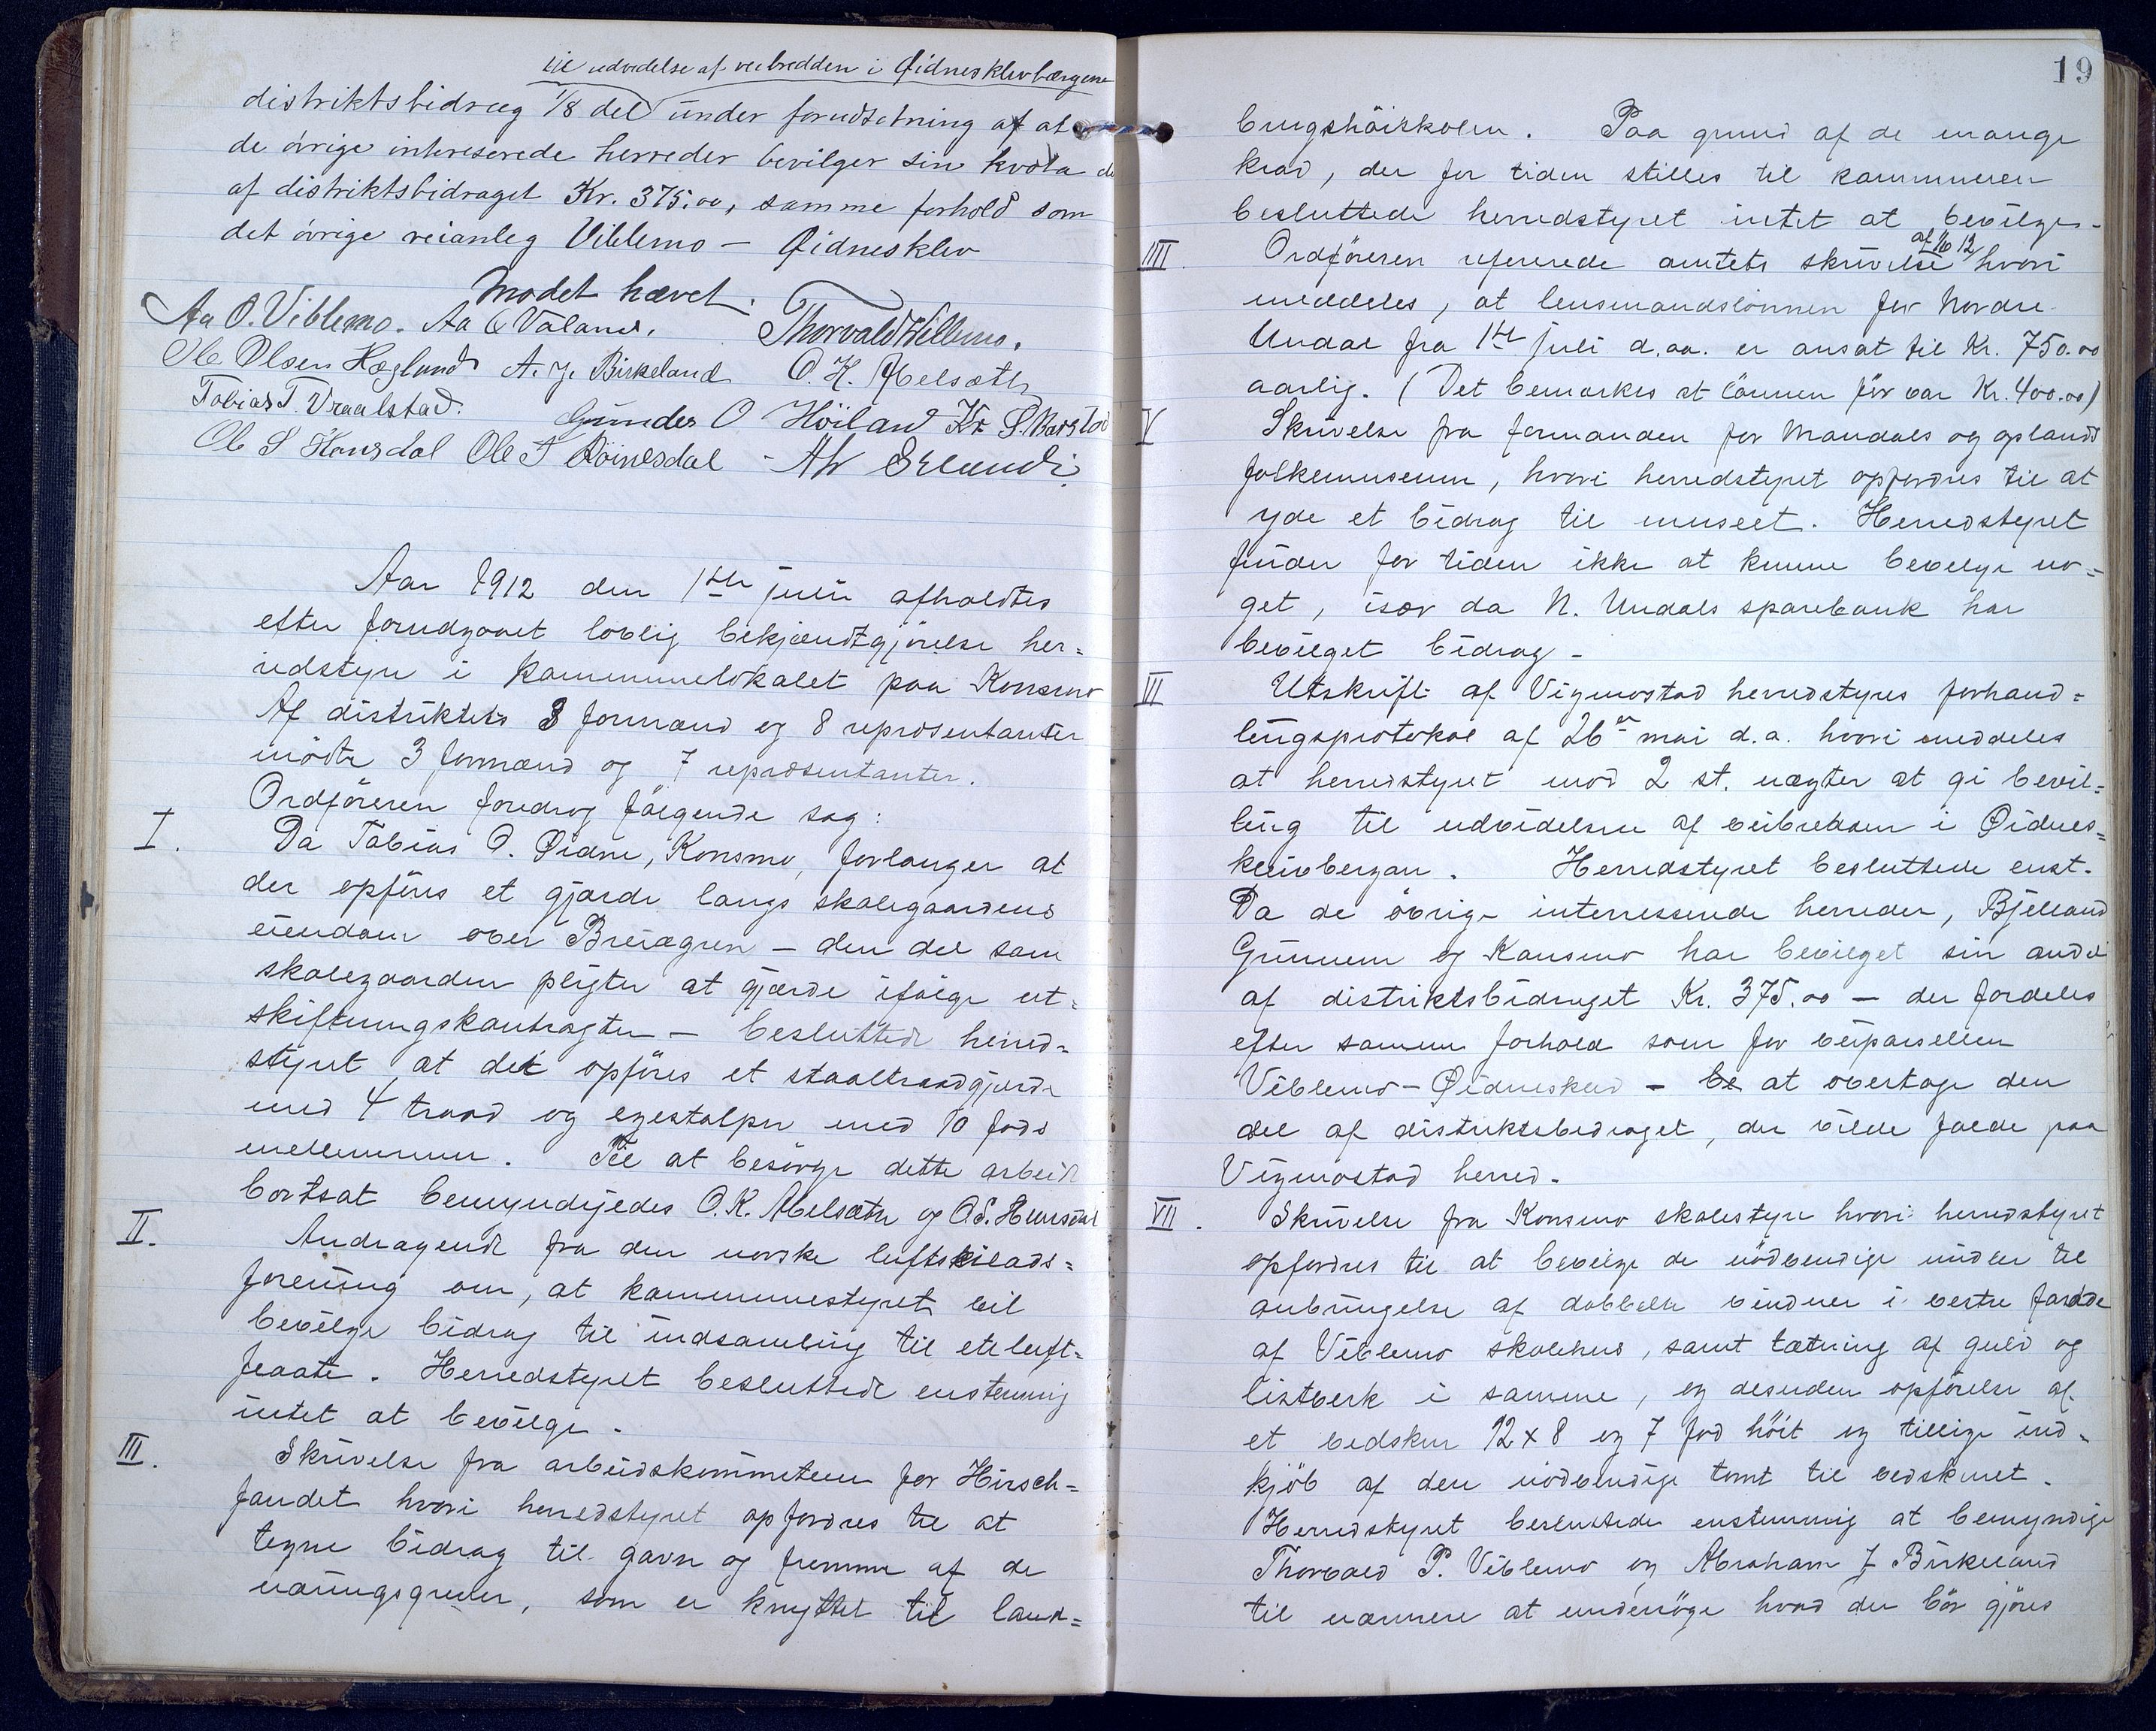 til udvidelse af veibredden i Øidnesklevbærgene
distriktsbidrag 1/8 del under forudsætning af at
de övrige intereserede herreder bevilger sin kvota
af distriktsbidraget Kr. 375.00, samme forhold som
det övrige veianleg Viblemo — Øidnesklev
Mödet hævet.
Aa O. Viblemo. Aa O Valand. Thorvald Viblemo.
Ole Olsen Hægland A. J. Birkeland O. K. Abelsæth
Tobias T. Vraalstad. Gunder O Höiland Kr. S.
Ole S Hönsdal Ole T Röinesdal - Erlandi
Aar 1912 den 1ste juli afholdtes
efter forudgaaet lovlig bekjændtgjörelse her=
redstyre i kommunelokalet paa Konsmo
Af distriktets 3 formænd og 8 repræsentanter
mödte 3 formænd og 7 repræsentanter.
Ordföreren foredrog fölgende sag:
I. Da Tobias O. Øidne, Konsmo, forlanger at
der opföres et gjærde langs skolegaardens
eiendom over Breiagren — den del som
skolegaarden pligter at gjærde ifölge ut=
skiftningskontragten — besluttede herred=
styret at det opföres et staaltraadgjærde
med 4 traad og egestolper med 10 fods
mellemrum. Til at besörge dette arbeide
bortsat bemyndigedes O. K. Abelsæth og O S. Hönsdal
II. Andragende fra den norske luftskilads=
forening om, at kommunestyret vil
bevilge bidrag til indsamling til ett luft=
flaate. Herredstyret besluttede enstemmig
intet at bevilge.
III. Skrivelse fra arbeidskommiteen for Hirsch=
fondet hvori herredstyret opfordres til at
tegne bidrag til gavn og fremme af de
næringsgrener, som er knyttet til land=
19
brugshöiskolen. Paa grund af de mange
krav, der for tiden stilles til kommunen
besluttede herredstyret intet at bevilge.
af 11/6 12
IIII. Ordföreren refererede amtets skrivelse hvori
meddeles, at lensmandslönnen for Nordre
Undal fra 1ste juli d.aa. er ansat til Kr. 750.00
aarlig. (Det bemærkes at lönnen för var Kr. 400.00)
V Skrivelse fra formanden for Mandals og oplands
folkemuseum, hvori herredstyret opfordres til at
yde et bidrag til museet. Herredstyret
finder for tiden ikke at kunne bevilge no=
get, især da N. Undals sparebank har
bevilget bidrag -
III Utskrift af Vigmostad herredstyres forhand=
lingsprotokol af 26de mai d.a. hvori meddeles
at herredstyret mod 2 st. nægter at gi bevil=
ling til udvidelsen af veibredden i Øidnes=
klevbergan. Herredstyret besluttede enst.
Da de övrige interressende herreder, Bjelland
Grinnem og Konsmo har bevilget sin andel
af distriktsbidraget Kr. 375.00 — der fordeles
efter samme forhold som for veiparsellen
Viblemo - Øidnesklev - be at overtage den
del af distriktsbidraget, der vilde falde paa
Vigmostad herred.
VII. Skrivelse fra Konsmo skolestyre hvori herredstyret
opfordres til at bevilge de nödvendige midler til
anbringelse af dobbelte vinduer i vestre facade
af Viblemo skolehus, samt tætning af gulv og
listverk i samme, og desuden opförelse af
et vedskur 12 x 8 og 7 fod höit og tillige ind=
kjöb af den nödvendige tomt til vedskuret.
Herredstyret besluttede enstemmig at bemyndige
Thorvald P. Viblemo og Abraham J Birkeland
til nærmere at undersöge hvad der bör gjöres